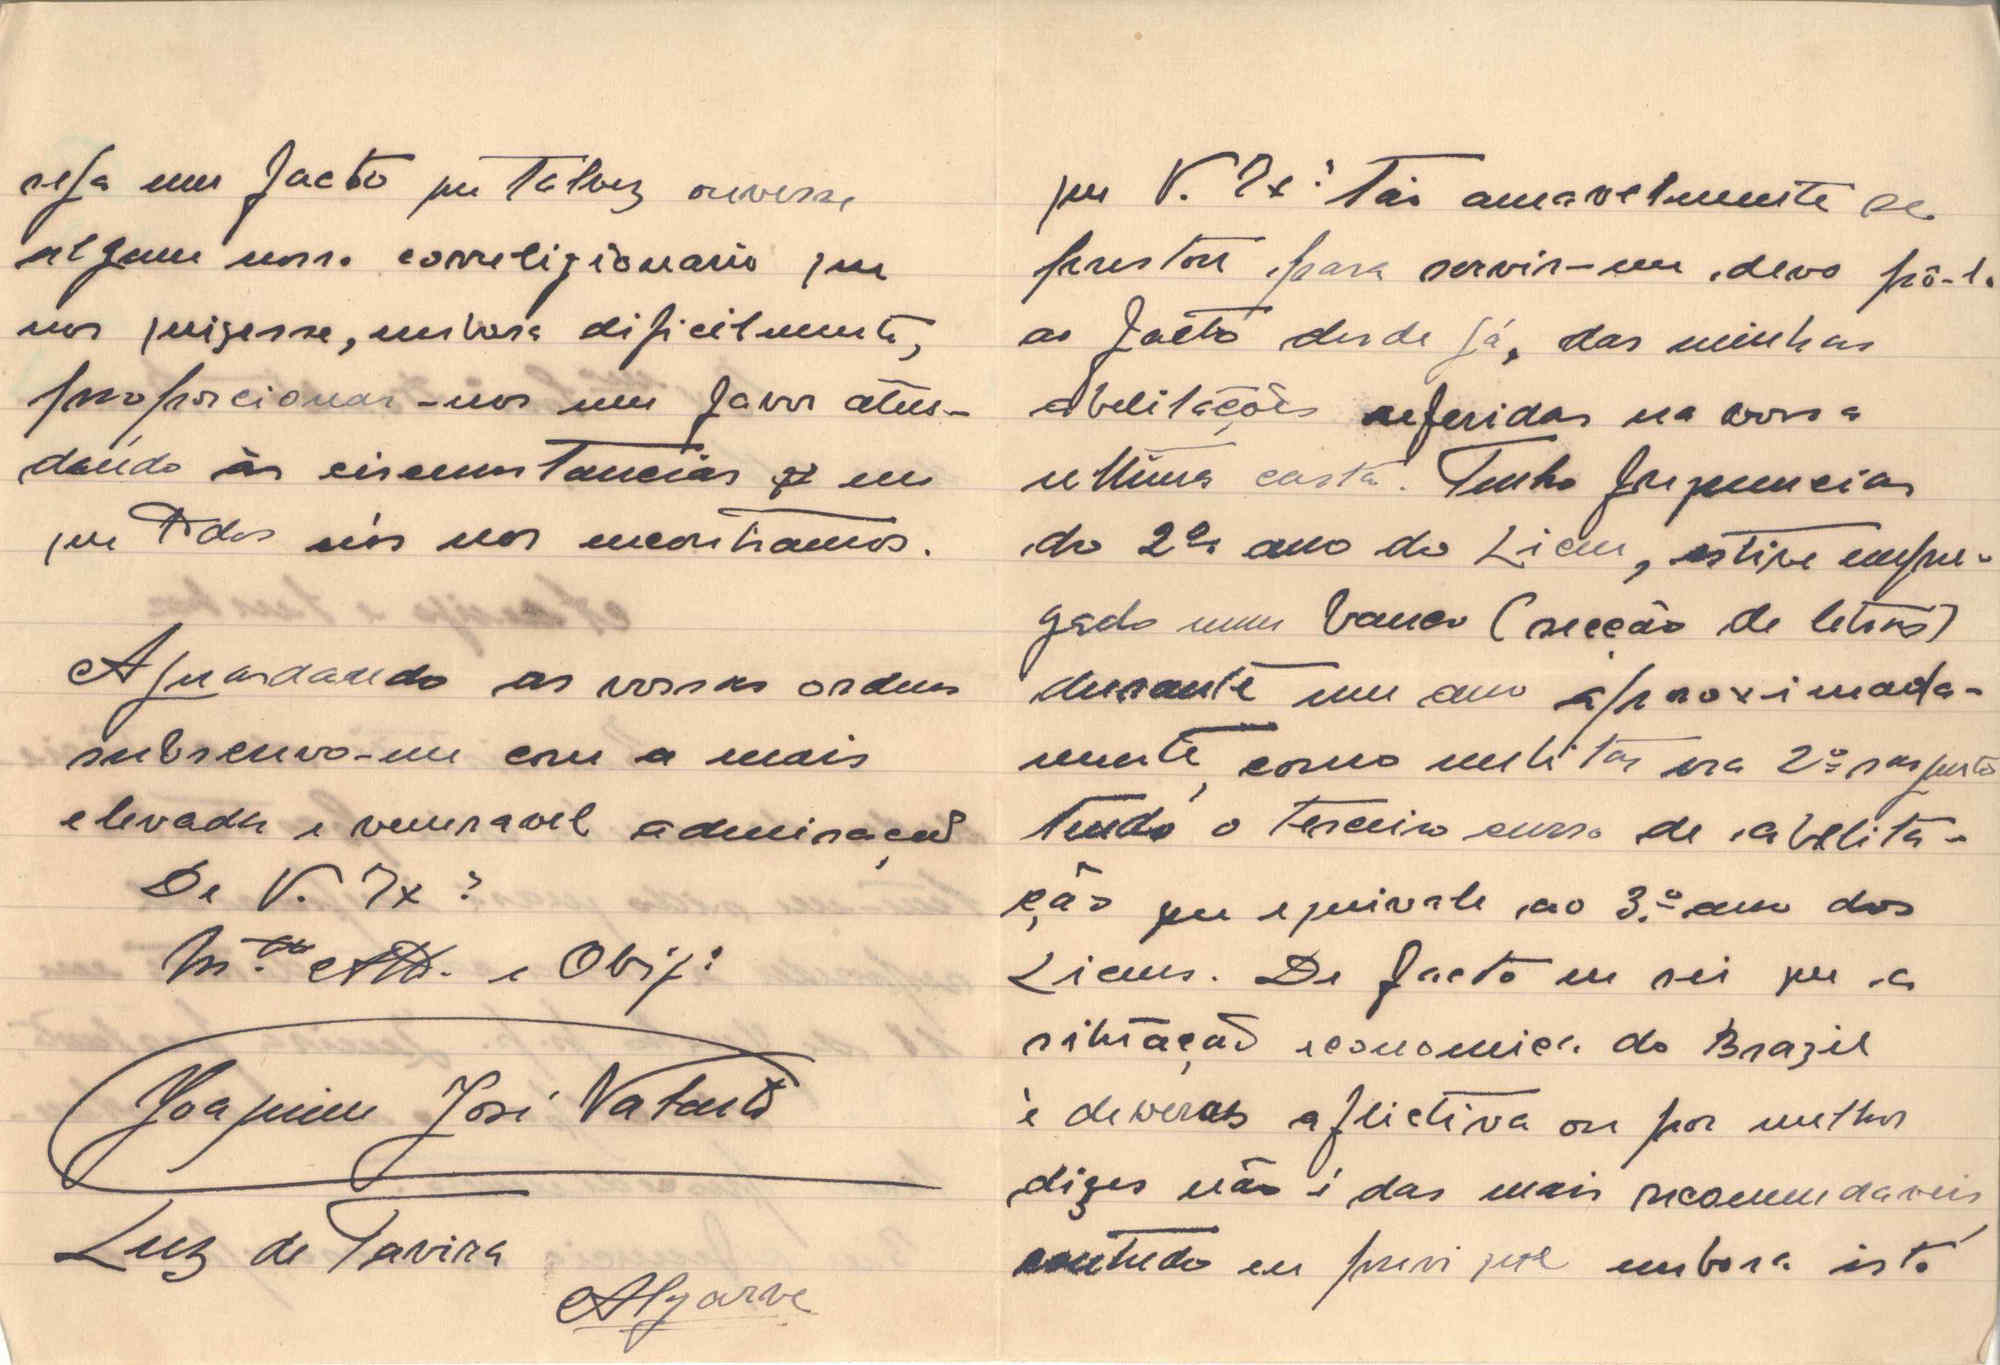 que V. Ex.ª tão amavelmente se
prestou para servir-me, devo pô-l.
ao facto desde já, das minhas
abelitações referidas na vossa
ultima carta. Tenho frequencias
do 2º ano do Liceu, estive empre-
gado num banco (secção de letras)
durante um ano aproximada-
mente, como militar era 2º sargento
tendo o terceiro curso de abelita-
ção que equivale ao 3.º ano dos
Liceus. De facto eu sei que a
situação economica do Brazil
é deveras aflictiva ou por melhor
dizer não é das mais recomendaveis
contudo eu previ que embora isto
seja um facto que talvez ouvesse
algum nosso correligionario que
nos quizesse, embora dificilmente,
proporcionar-nos um favor aten-
dendo às circumstancias em
que Todos nós nos encontramos.
Aguardando as vossas ordens
subscrevo-me com a mais
elevada e veneravel admiração
De V. Ex.ª
M.to Att. e Obrig.
Joaquim José Valente
Luz de Tavira
Algarve